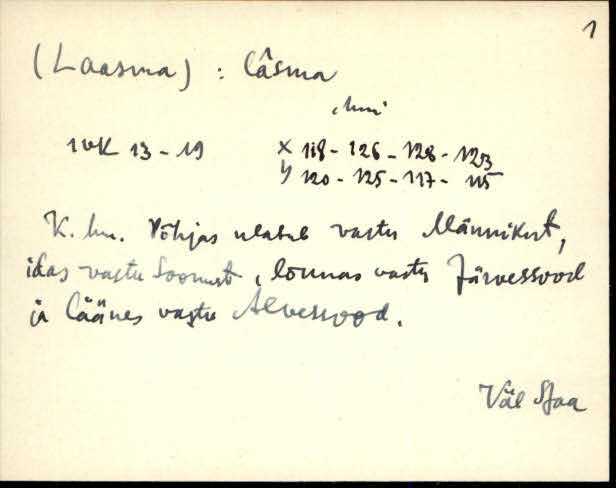 1
(Laasma) : lâsma
hni
IVK 13-19 x 118 - 126 - 128 - 123
y 120 - 125 - 117 - 115
K. hn. Põhjas ulatub vastu Männikut,
idas vastu Soonurt, lõunas vastu Järvessood
ja läänes vastu Alvessood.
Väl